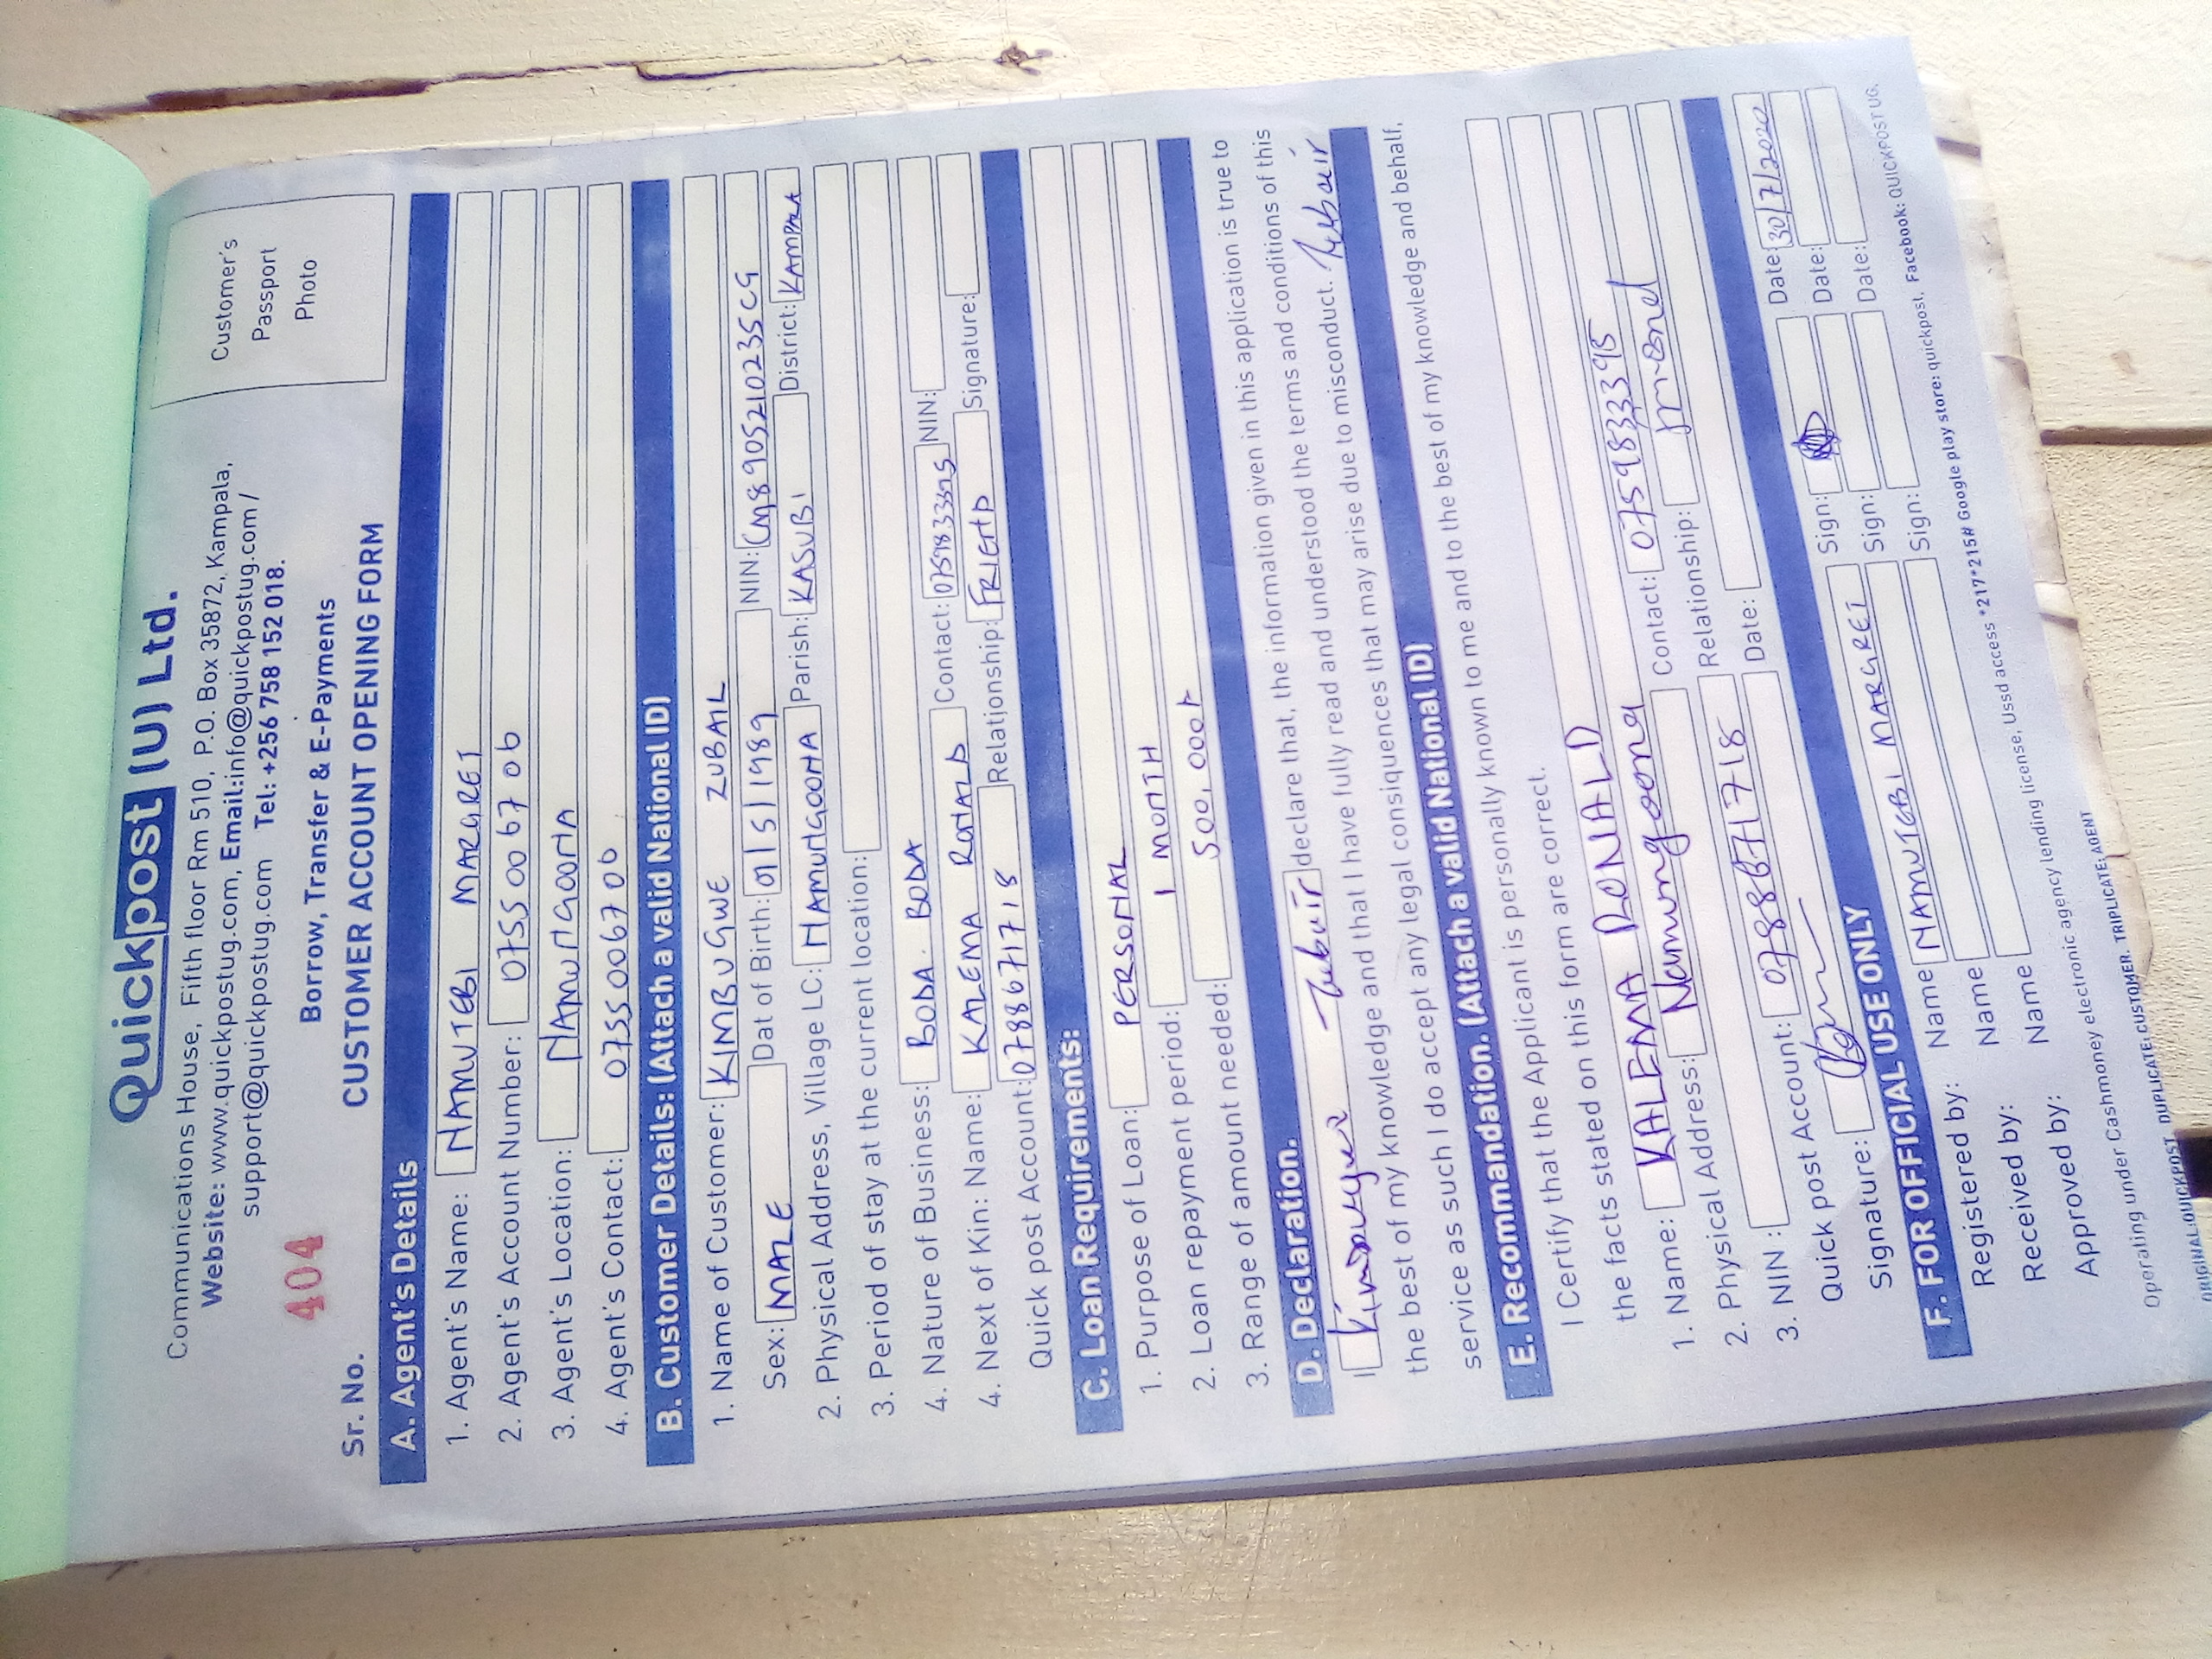 Quickpost (U) Ltd.
Communications House, Fifth floor Rm 510, P.O. Box 35872, Kampala,
Website: www.quickpostug.com, Email:info@quickpostug.com/
support@quickpostug.com Tel: +256 758 152 018.
Borrow, Transfer & E-Payments
CUSTOMER ACCOUNT OPENING FORM
Customer's
Passport
Photo
Sr. No. 404
A. Agent's Details
1. Agent's Name: NAMUTEBI MARGRET
2. Agent's Account Number: 0755006706
3. Agent's Location: NAMUNGOONA
4. Agent's Contact: 0755006706
B. Customer Details: (Attach a valid National ID)
1. Name of Customer: KIMBUGWE ZUBAIL
Sex: MALE Dat of Birth: 01/5/1989 NIN: CM8905210235CG
2. Physical Address, Village LC: NAMUNGOONA Parish: KASUBI District: KAMPALA
3. Period of stay at the current location:
4. Nature of Business: BODA. BODA
4. Next of Kin: Name: KALEMA RONALD Contact: 0759833395 NIN:
Quick post Account: 0788671718 Relationship: FRIEND Signature:
C. Loan Requirements:
1. Purpose of Loan: PERSONAL
2. Loan repayment period: 1 MONTH
3. Range of amount needed: 500,000/=
D. Declaration.
I Kimbugwe Zubair declare that, the information given in this application is true to
the best of my knowledge and that I have fully read and understood the terms and conditions of this
service as such I do accept any legal consiquences that may arise due to misconduct. Zubair
E. Recommandation. (Attach a valid National ID)
I Certify that the Applicant is personally known to me and to the best of my knowledge and behalf,
the facts stated on this form are correct.
1. Name: KALEMA RONALD
2. Physical Address: Namungoona Contact: 0759833395
3. NIN : Relationship: friend
Quick post Account: 0788671718 Date:
Signature:
F. FOR OFFICIAL USE ONLY
Registered by: Name NAMUTEBI MARGRET Sign: Date: 30/7/2020
Received by: Name Sign: Date:
Approved by: Name Sign: Date:
Operating under Cashmoney electronic agency lending license, Ussd access *217*215# Google play store: quickpost, Facebook: QUICKPOST UG.
ORIGINAL:QUICKPOST DUPLICATE: CUSTOMER. TRIPLICATE: AGENT